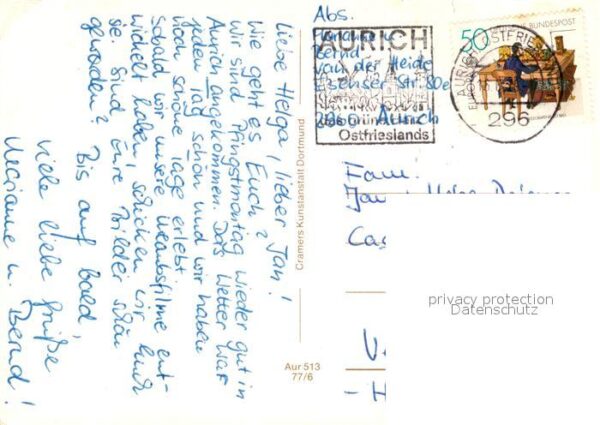 Liebe Helga, lieber Jan!
Wie geht es Euch?
Wir sind Pfingstmontag wieder gut in
Aurich angekommen. Das Wetter war
jeden Tag schön und wir haben
noch schöne Tage erlebt.
Sobald wir unsere Urlaubsfilme ent-
wickelt haben, schicken wir Euch
sie. Sind Eure Bilder schön
geworden?
Bis auf bald
viele liebe Grüße
u. Bernd!
Cramers Kunstanstalt Dortmund
Aur 513
77/6
Abs.
Bernd
van der Heide
Esenser Str. 80e
2960 Aurich
AURICH
das Grüne
Ostfrieslands
50
DEUTSCHE BUNDESPOST
AURICH, OSTFRIESL
296
Fam.
Jan u. Helga
privacy protection
Datenschutz